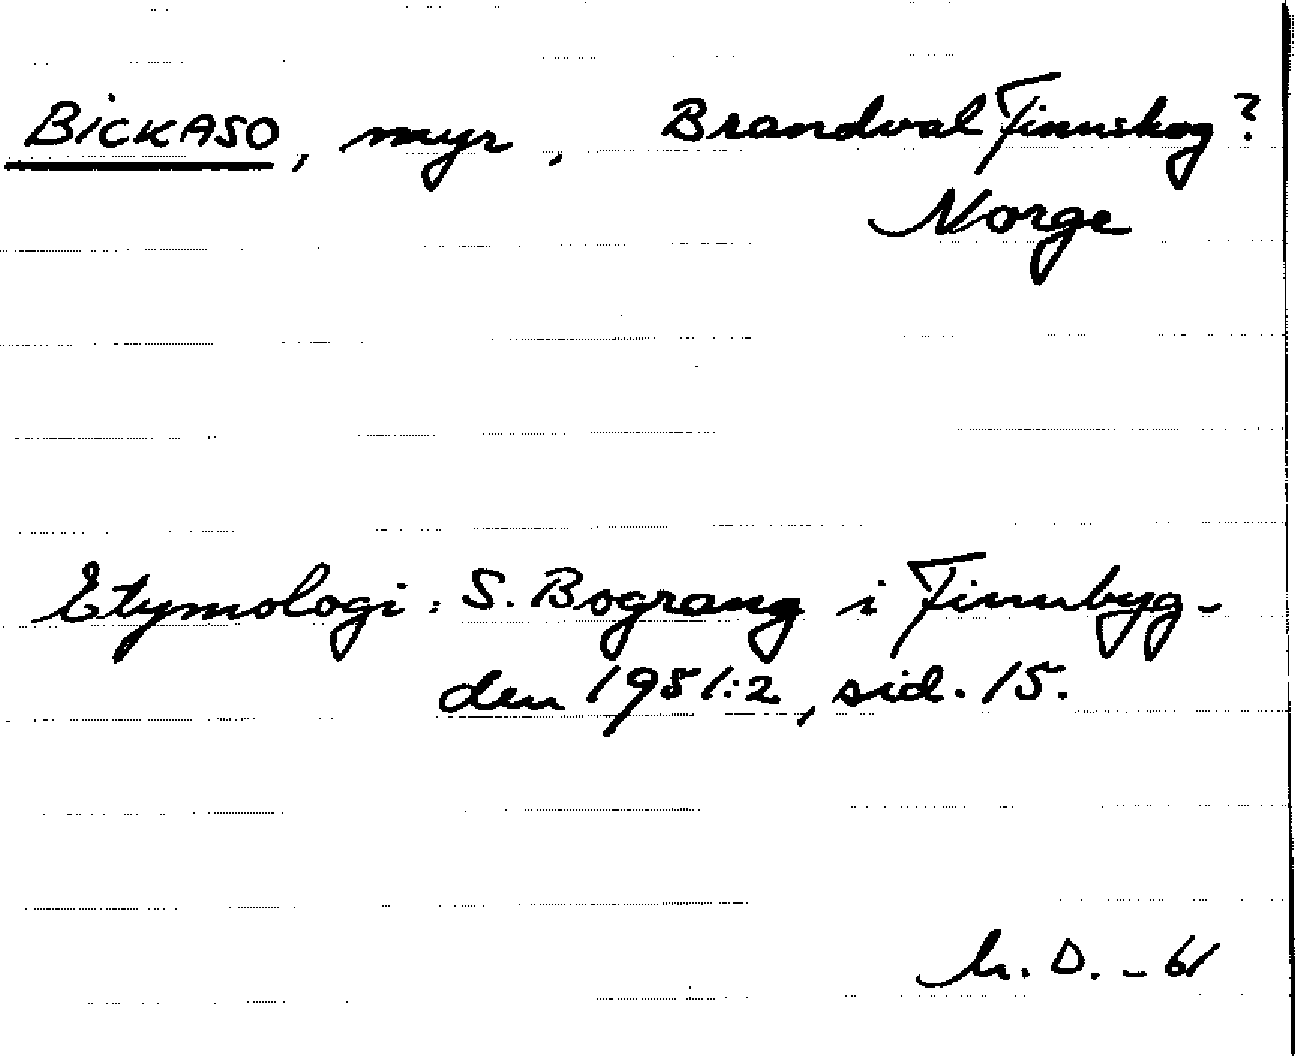 BICKASO, myr, Brandval Finnskog?
Norge
Etymologi: S. Bograng i Finnbyg-
den 1951:2, sid. 15.
D. - 61